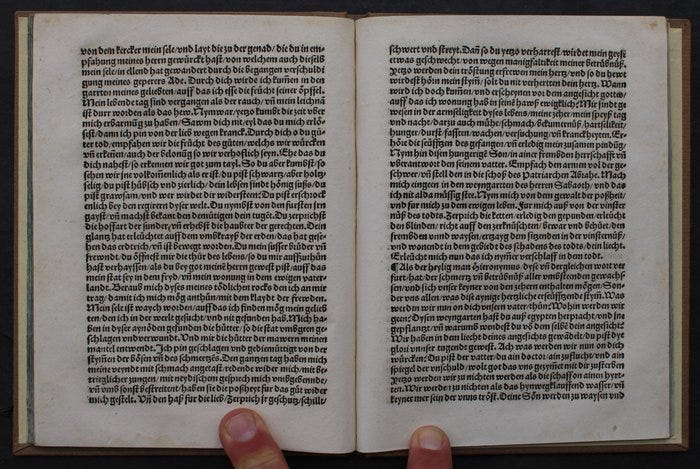 von dem kercker mein sele/vnd layt die zu der genad/die du in em-
pfahung meines herrn gewürckt hast/von welchem auch dieselb
mein sele/in ellend hat gewandert durch die begangen verschuldi
gung meines geperers Ade. Durch dich wirde ich kum̃en in den
garten meines geliebten/auff das ich esse die frücht seiner öpffel.
Mein lebende tag sind vergangen als der rauch/vñ mein leichnã
ist durr worden als das hew. Nym war/yetzo kumbt die zeyt über
mich erbarmũg zu haben/Sawm dich nit/eyl das du mich erlö-
sest/dann ich pin von der lieb wegen kranck. Durch dich o du gü-
ter tod/empfahen wir die frücht des güten/welchs wir würcken
vñ erkenen/auch der belonũg so wir verhofflich seyn. Ehe das du
dich nahest/so erkennen wir got zum tayl. So du aber kumbst/so
sehen wir jne volkomenlich als er ist/du pist schwartz/aber holtz-
selig/du pist hübsch vnd zierlich/dein lebsen sindt hönig süß/du
pist grawsam/vnd wer wirdt dir widersteen: Du pist erschrock
enlich bey den regirern dyser welt. Du nymbst von den fursten jren
gayst/vñ machst bekant den demütigen dein tugẽt. Du zerpichst
die hoffart der sunder/vñ erhebst die haubter der gerechten. Dein
glantz hat erleüchtet auff dem vmbkrayß der erden/das hat gese-
hen das erdtrich/vñ ist bewegt worden. Du mein süsser brüder vñ
frewndt/du öffnest mir die thür des lebens/so du mir auffzuthün
hast verhayssen/als du bey got meine herrn gewest pist/auff das
mein stat sey in dem fryd/vñ mein wonung in dem ewigen vater
landt. Beraub mich dyses tödlichen rocks den ich an mir
trag/damit ich mich mög anthün/mit dem klaydt der frewden.
Mein sele ist waych worden/auff das ich finden mög mein gelieb
ten/den ich in der werlt gesucht/vnd nit gefunden hab. Mich ha-
ben in dyser aynöden gefunden die hütter/so die stat vmbgeen ge-
schlagen vnd verwundt. Vnd mir die hütter der mawern meinen
mantel entwendt. Ich pin geschlagen vnd gediemüttigt von der
stym̃en der bösen vñ des schmertzẽs. Den gantzen tag haben mich
meine veyndt mit schmach angetast/redende wider mich/mit be-
trüglicher zungen/mit neydischem gesprech mich vmbgebende/
vñ vmb sonst bestreitent/haben sie die poßheyt fur das güt wider
mich gestelt. Vñ den haß für die lieb/Zerpich jr geschütz/schilt/
schwert vnd streyt. Dañ so du yetzo verharrest/wirdet mein geyst
etwas geschwecht/von wegen manigfaltikeit meiner betrübnüß.
Yetzo werden dein tröstung erfrewen mein hertz/vnd so du hewt
wirdest hörn mein stym̃/solt du nit verherten dein hertz. Wann
wird ich doch kum̃en/vnd erscheynen vor dem angesicht gottes/
auff das ich wonung hab in seinẽ hawß ewigklich: Mir sind ge
wesen in der armseligkeit dyses lebens/meine zeher/mein speyß tag
vnd nacht/darzu auch mühe/schmach/bekumernüß/hartselikeit/
hunger/durst/fassten/wachen/versuchung/vñ kranckheyten. Er-
höre die seüfftzen des gefangen/erledig mein eysnen zusamen pindũg/
Nym hin disen hungerige Son/in ainer frembden herrschafft vñ
vberantwort den seinem vater. Empfach den armen vol der ge-
schwer/vñ stell den in die schoß des Patriarchen Abrahe. Mach
mich eingeen in den weyngarten des herren Sabaoth/vnd das
ich nit also müssig stee. Nym mich von dem gewalt der poßheit/
vnd fur mich zu dem ewigen leben. Fur mich auß von der vinster
nüß des todts. Zerpich die ketten/erledig den gepunden/erleücht
den blinden/richt auff den zerknüschten/bewar vnd behüt/den
frembden vnd waysen/erzayg dem sitzenden in der vinsternüß/
vnd wonendt in dem gebiedt des schadens des todts/dein liecht.
Erleücht mich nun das ich nym̃er verschlaff in dem todt.
¶ Als der heylig man Hieronymus/dyse vñ dergleichen wort ver
furt hat/der schmertz vñ betrübnüß aller vmbstenden gewachs-
sen/vnd sich vnser keyner von den zehern enthalten mögen/Son-
der vns allen/was dise aynige hertzliche erseüfftzende stym̃. Was
werden wir nun on dich vnsern vater thün: Wohin werden wir
geen: Dysen weyngarten hast du auß egypten herpracht/vnd jne
gepflantzt/vñ warumb wendest du võ dem selbẽ dein angesicht:
Wir haben in dem liecht deines angesichts gewãdelt/du pist dye
gloriy vnser tugendt gewest. Ach was werden wir nun on dich
würcken: Du pist der vatter/du ain doctor/ain zuflucht/vnd ain
spiegel der vnschuld/wolt got das vns gezymet mit dir zusterben
Yetzo werden wir zu nichten werden als die schaff on ainen hyrt-
ten. Wir werdẽ zu nichten als das hynwegklauffend wasser/vñ
keyner mer sein der vnns tröst. Deine Sön werden zu waysen vnd